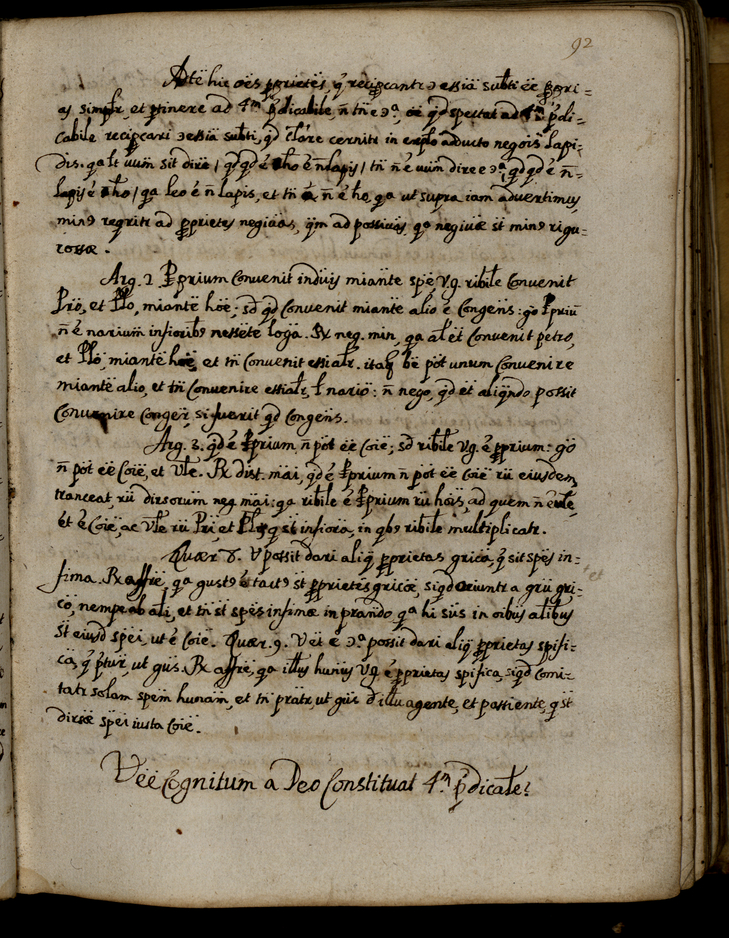 92
Adte hic oēs pprietēs, q̄ recipcantr ɔ essiā subti ēē ppri=
as simplr, et ptinere ad 4ᵐ p̄dicabile, n̄ tn̄ e ɔᵃ, oē qd spectat ad 4ᵐ p̄di=
cabile recipcari ɔ essiā subti, qd clare cernitr in explo adducto negois lapi=
dis. qa lt uum sit dire / qd qd ē ho ē n̄ lapis / tn̄ n̄ ē uum dire e ɔᵃ, qd qd ē n̄=
lapis ē ho / qa leo ē n̄ lapis, et tn̄ n̄ ē ho, qa ut supra iam advertimus
min9 regritr ad pprietes negiuas, qm ad possiuas, qa negiuæ st min9 rigu=
rosæ.
Arg. 2. Pprium Convenit induijs miante spē v.g. ribile Convenit
Pro, et Plo, miante hoē; sd qd Convenit miante alio ē Congens: go Ppriū
n̄ ē narium inferiorib9 nessete loga. Rx neg. min, qa al et Convenit petro,
et Plo, miante hoē, et tn̄ Convenit essialr. itaq bē pōt unum Convenire
miante alio, et tn̄ Convenire essialr, l nario: n̄ nego, qd et aliqndo possit
Convenire Congenr, si fuerit qd Congens.
Arg. 3. qd ē Pprium n̄ pōt ēē Coiē; sd ribile v.g. ē pprium: go
n̄ pōt ēē Coiē, et Vle. Rx dist. mai, qd ē Pprium n̄ pōt ēē Coiē rū eiusdem
tranceat, rū dirsorum neg mai: qa ribile ē Pprium rū hois, ad quem n̄ ē vle,
et ē Coiē, ac Vle rū Pri, et Pli, q st infiora, in qb9 ribile multiplicatr.
Quær 8. V possit dari aliq pprietas grica, q̄ sit spēs in=
fima. Rx affre, qa gust9 et tact9 st pprietēs gricæ, siqd oriuntr a grū gri=
co, nempe ab ali, et tn̄ st spēs infimæ in prando qa hi siis in oibus alibus
st eiusd spei, ut ē Coiē. Quær. 9. V et ē ɔᵃ possit dari aliq pprietas spifi=
ca, q̄ ptur, ut gus. Rx affre, qa illus humus v.g. ē pprietas spifica, siqd comi=
tatr solam spem humanam, et tn̄ pratr, ut gus d illu agente, et patiente, q st
dirsæ spei iusta Coiē.
V ēē Cognitum a Deo Constituat 4ᵐ p̄dicale?